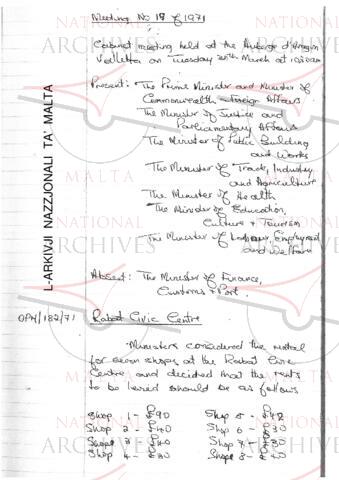 Meeting No 18 of 1971
Cabinet meeting held at the Auberge d'Aragon
Valletta on Tuesday March at
Present: The Prime Minister and Minister of
Commonwealth & Foreign Affairs
The Minister of Justice and
Parliamentary Affairs
The Minister of Public Building
and Works
The Minister of Trade, Industry
and Agriculture
The Minister of Health
The Minister of Education,
Culture & Tourism
The Minister of Labour, Employment
and Welfare
Absent: The Minister of Finance,
Customs & Port.
OPM/182/71 Rabat Civic Centre
Ministers considered the rental
for seven shops at the Rabat Civic
Centre and decided that the rents
to be levied should be as follows
Shop 1 - £90 Shop 5 -
Shop 2 - £40 Shop 6 - £30
Shop 3 - £40 Shop 7 - £30
Shop 4 - £30 Shop 8 -
L-ARKIVJI NAZZJONALI TA' MALTA
NATIONAL
ARCHIVES